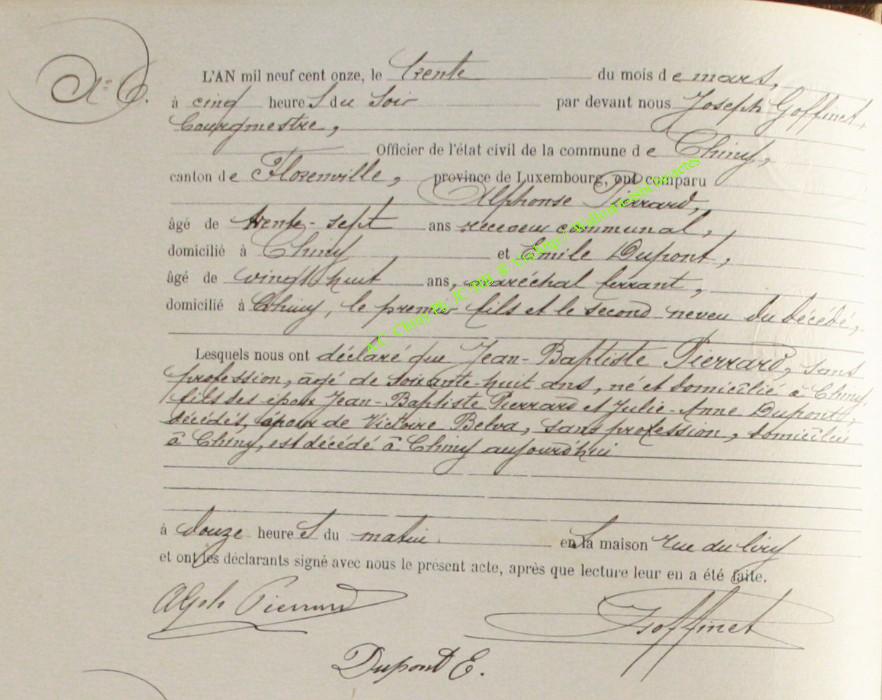 N° 6.
L'AN mil neuf cent onze, le trente du mois d e mars,
à cinq heure s du soir par devant nous Joseph Goffinet,
Bourgmestre,
Officier de l'état civil de la commune d e Chiny,
canton de Florenville, province de Luxembourg, ont comparu
Alphonse Pierrard,
âgé de trente-sept ans receveur communal,
domicilié à Chiny et Emile Dupont,
âgé de vingt huit ans, maréchal ferrant,
domicilié à Chiny, le premier fils et le second neveu du décédé,
Lesquels nous ont déclaré que Jean-Baptiste Pierrard, sans
profession, âgé de soixante-huit ans, né et domicilié à Chiny,
fils des époux Jean-Baptiste Pierrard et Julie-Anne Dupont,
décédés, époux de Victoire Belva, sans profession, domiciliée
à Chiny, est décédé à Chiny aujourd'hui
à douze heure s du matin en la maison rue du
et ont les déclarants signé avec nous le présent acte, après que lecture leur en a été faite.
Alph Pierrard
JGoffinet
Dupont E.